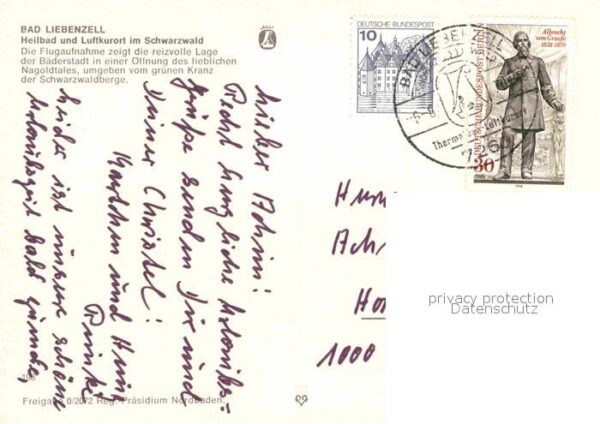 BAD LIEBENZELL
Heilbad und Luftkurort im Schwarzwald
Die Flugaufnahme zeigt die reizvolle Lage
der Bäderstadt in einer Öffnung des lieblichen
Nagoldtales, umgeben vom grünen Kranz
der Schwarzwaldberge.
DEUTSCHE BUNDESPOST
10
BAD LIEBENZELL
Thermalbad Luftkurort
DEUTSCHE BUNDESPOST BERLIN
Albrecht
von Graefe
1828-1870
30
Lieber Achim!
Recht herzliche Urlaubs=
grüße senden Dir und
Deiner Christel!
und
Leider ist unsere schöne
Urlaubszeit bald zu Ende,
1000
privacy protection
Datenschutz
Freigabe 0/2072 Reg. Präsidium Nordbaden.